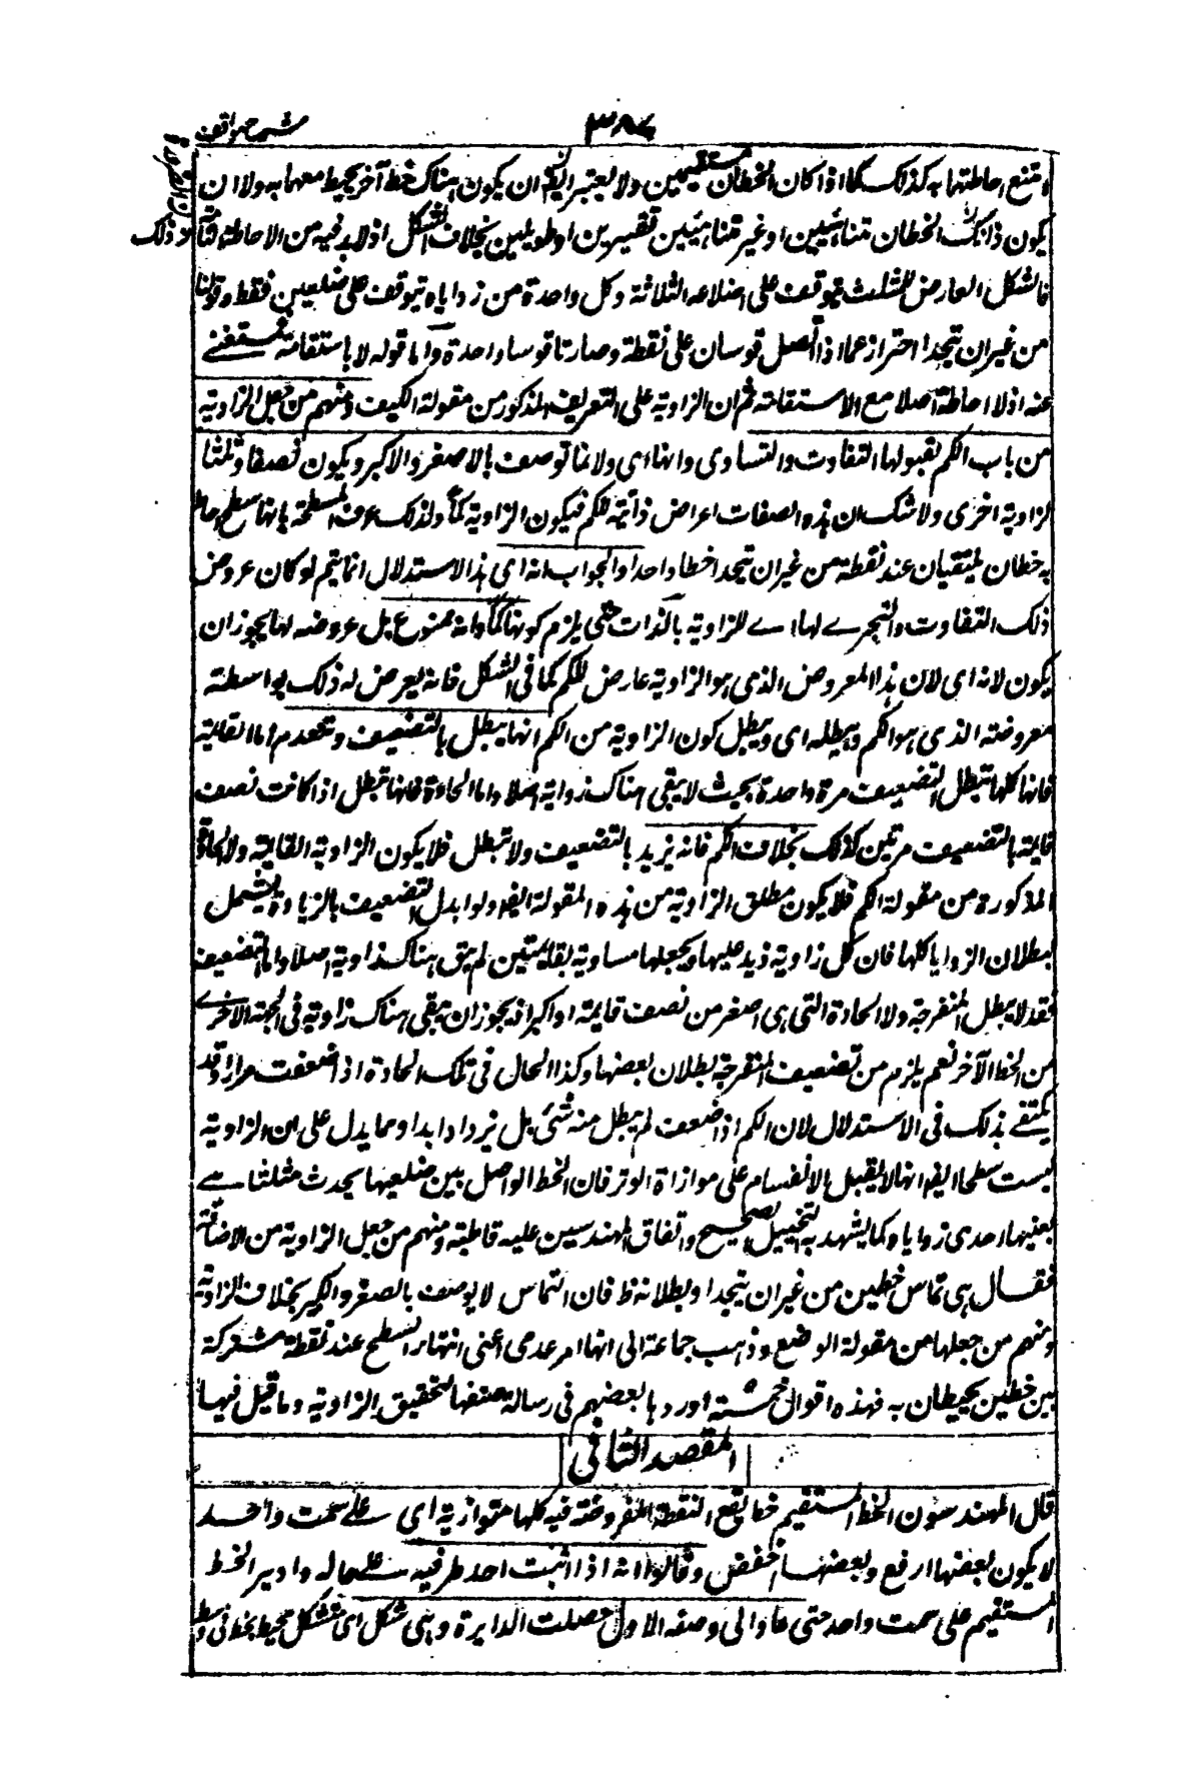 شرح مواقف
٣٨٧
امتنع احاطتهما به كذلك كما اذا كان الخطان مستقيمين ولا يعتبر ايضا ان يكون هناك خط آخر يحيط معهما به ولا ان
يكون ذانك الخطان متناهيين او غير متناهيين قصيرين او طويلين بخلاف الشكل اذ لا بد فيه من الاحاطة التامة وذلك
فالشكل العارض للمثلث يتوقف على اضلاعه الثلاثة وكل واحدة من زواياه يتوقف على ضلعين فقط وقولنا
من غير ان يتحدا احتراز عما اذا اتصل قوسان على نقطة وصارتا قوسا واحدة واما قوله لا باستقامة فمستغنے
عنه اذ لا احاطة اصلا مع الاستقامة ثم ان الزاوية على التعريف المذكور من مقولة الكيف ومنهم من جعل الزاوية
من باب الكم لقبولها التفاوت والتساوى وانها اى ولانها توصف بالاصغر والاكبر ويكون نصفا وثلثا
لزاوية اخرى ولا شك ان هذه الصفات اعراض ذاتية للكم فيكون الزاوية كما ولذلك عرف المسطحة بانها سطح احاط
به خطان يلتقيان عند نقطة من غير ان يتحدا خطا واحدا والجواب انه اى هذا الاستدلال انما يتم لو كان عروض
ذلك التفاوت والتجزے لها اے للزاوية بالذات حتى يلزم كونها كما وانه ممنوع بل عروضه لها يجوز ان
يكون لانه اى لان هذا المعروض الذى هو الزاوية عارض للكم كما فى الشكل فانه يعرض له ذلك بواسطة
معروضة الذى هو الكم ويبطله اى ويبطل كون الزاوية من الكم انها يبطل بالتضعيف وتنعدم اما القائمة
فانها كلها تبطل بالتضعيف مرة واحدة بحيث لا يبقى هناك زواية اصلا واما الحادة فانها تبطل اذا كانت نصف
قائمة بالتضعيف مرتين كذلك بخلاف الكم فانه يزيد بالتضعيف ولا تبطل فلا يكون الزاوية القائمة ولا الحادة
المذكورة من مقولة الكم فلا يكون مطلق الزاوية من هذه المقولة ايضا ولو ابدل التضعيف بالزيادة يشمل
بطلان الزوايا كلها فان كل زاوية زيد عليها ويجعلها مساوية لقائمتين لم يبق هناك زاوية اصلا واما بالتضعيف
فقد لا يبطل المنفرجة ولا الحادة التى هى اصغر من نصف قايمة او اكبر اذ يجوز ان يبقى هناك زاوية فى الجهة الاخرے
من الخط الآخر نعم يلزم من تضعيف المنفرجة بطلان بعضها وكذا الحال فى تلك الحادة اذا ضعفت مرارا وقد
يكتفے بذلك فى الاستدلال لان الكم اذا ضعف لم يبطل منه شئ بل يزداد ابدا ومما يدل على ان الزاوية
ليست سطحا ايضا انها لا يقبل الانقسام على موازاة الوتر فان الخط الواصل بين ضلعيها يحدث مثلثا هے
بعينها احدى زواياه كما يشهد به التخييل الصحيح واتفاق المهندسين عليه قاطبة ومنهم من جعل الزاوية من الاضافة
فقال هى تماس خطين من غير ان يتحدا وبطلانه ظ فان التماس لا يوصف بالصغر والكبر بخلاف الزاوية
ومنهم من جعلها من مقولة الوضع وذهب جماعة الى انها امر عدمى اعنى انتهاء السطح عند نقطة مشتركة
بين خطين يحيطان به فهذه اقوال خمسة اوردها بعضهم فى رسالة صنفها لتحقيق الزاوية وما قيل فيها
المقصد الثانى
قال المهندسون الخط المستقيم خط يقع النقطة المفروضة فيه كلها متوازية اى على سمت واحد
لا يكون بعضها ارفع وبعضها اخفض وقالوا انه اذا اثبت احد طرفيه على حاله وادير الخط
المستقيم على سمت واحد حتى عاد الى وضعه الاول حصلت الدايرة وهى شكل اى متشكل يحيط به خط فى وسطه